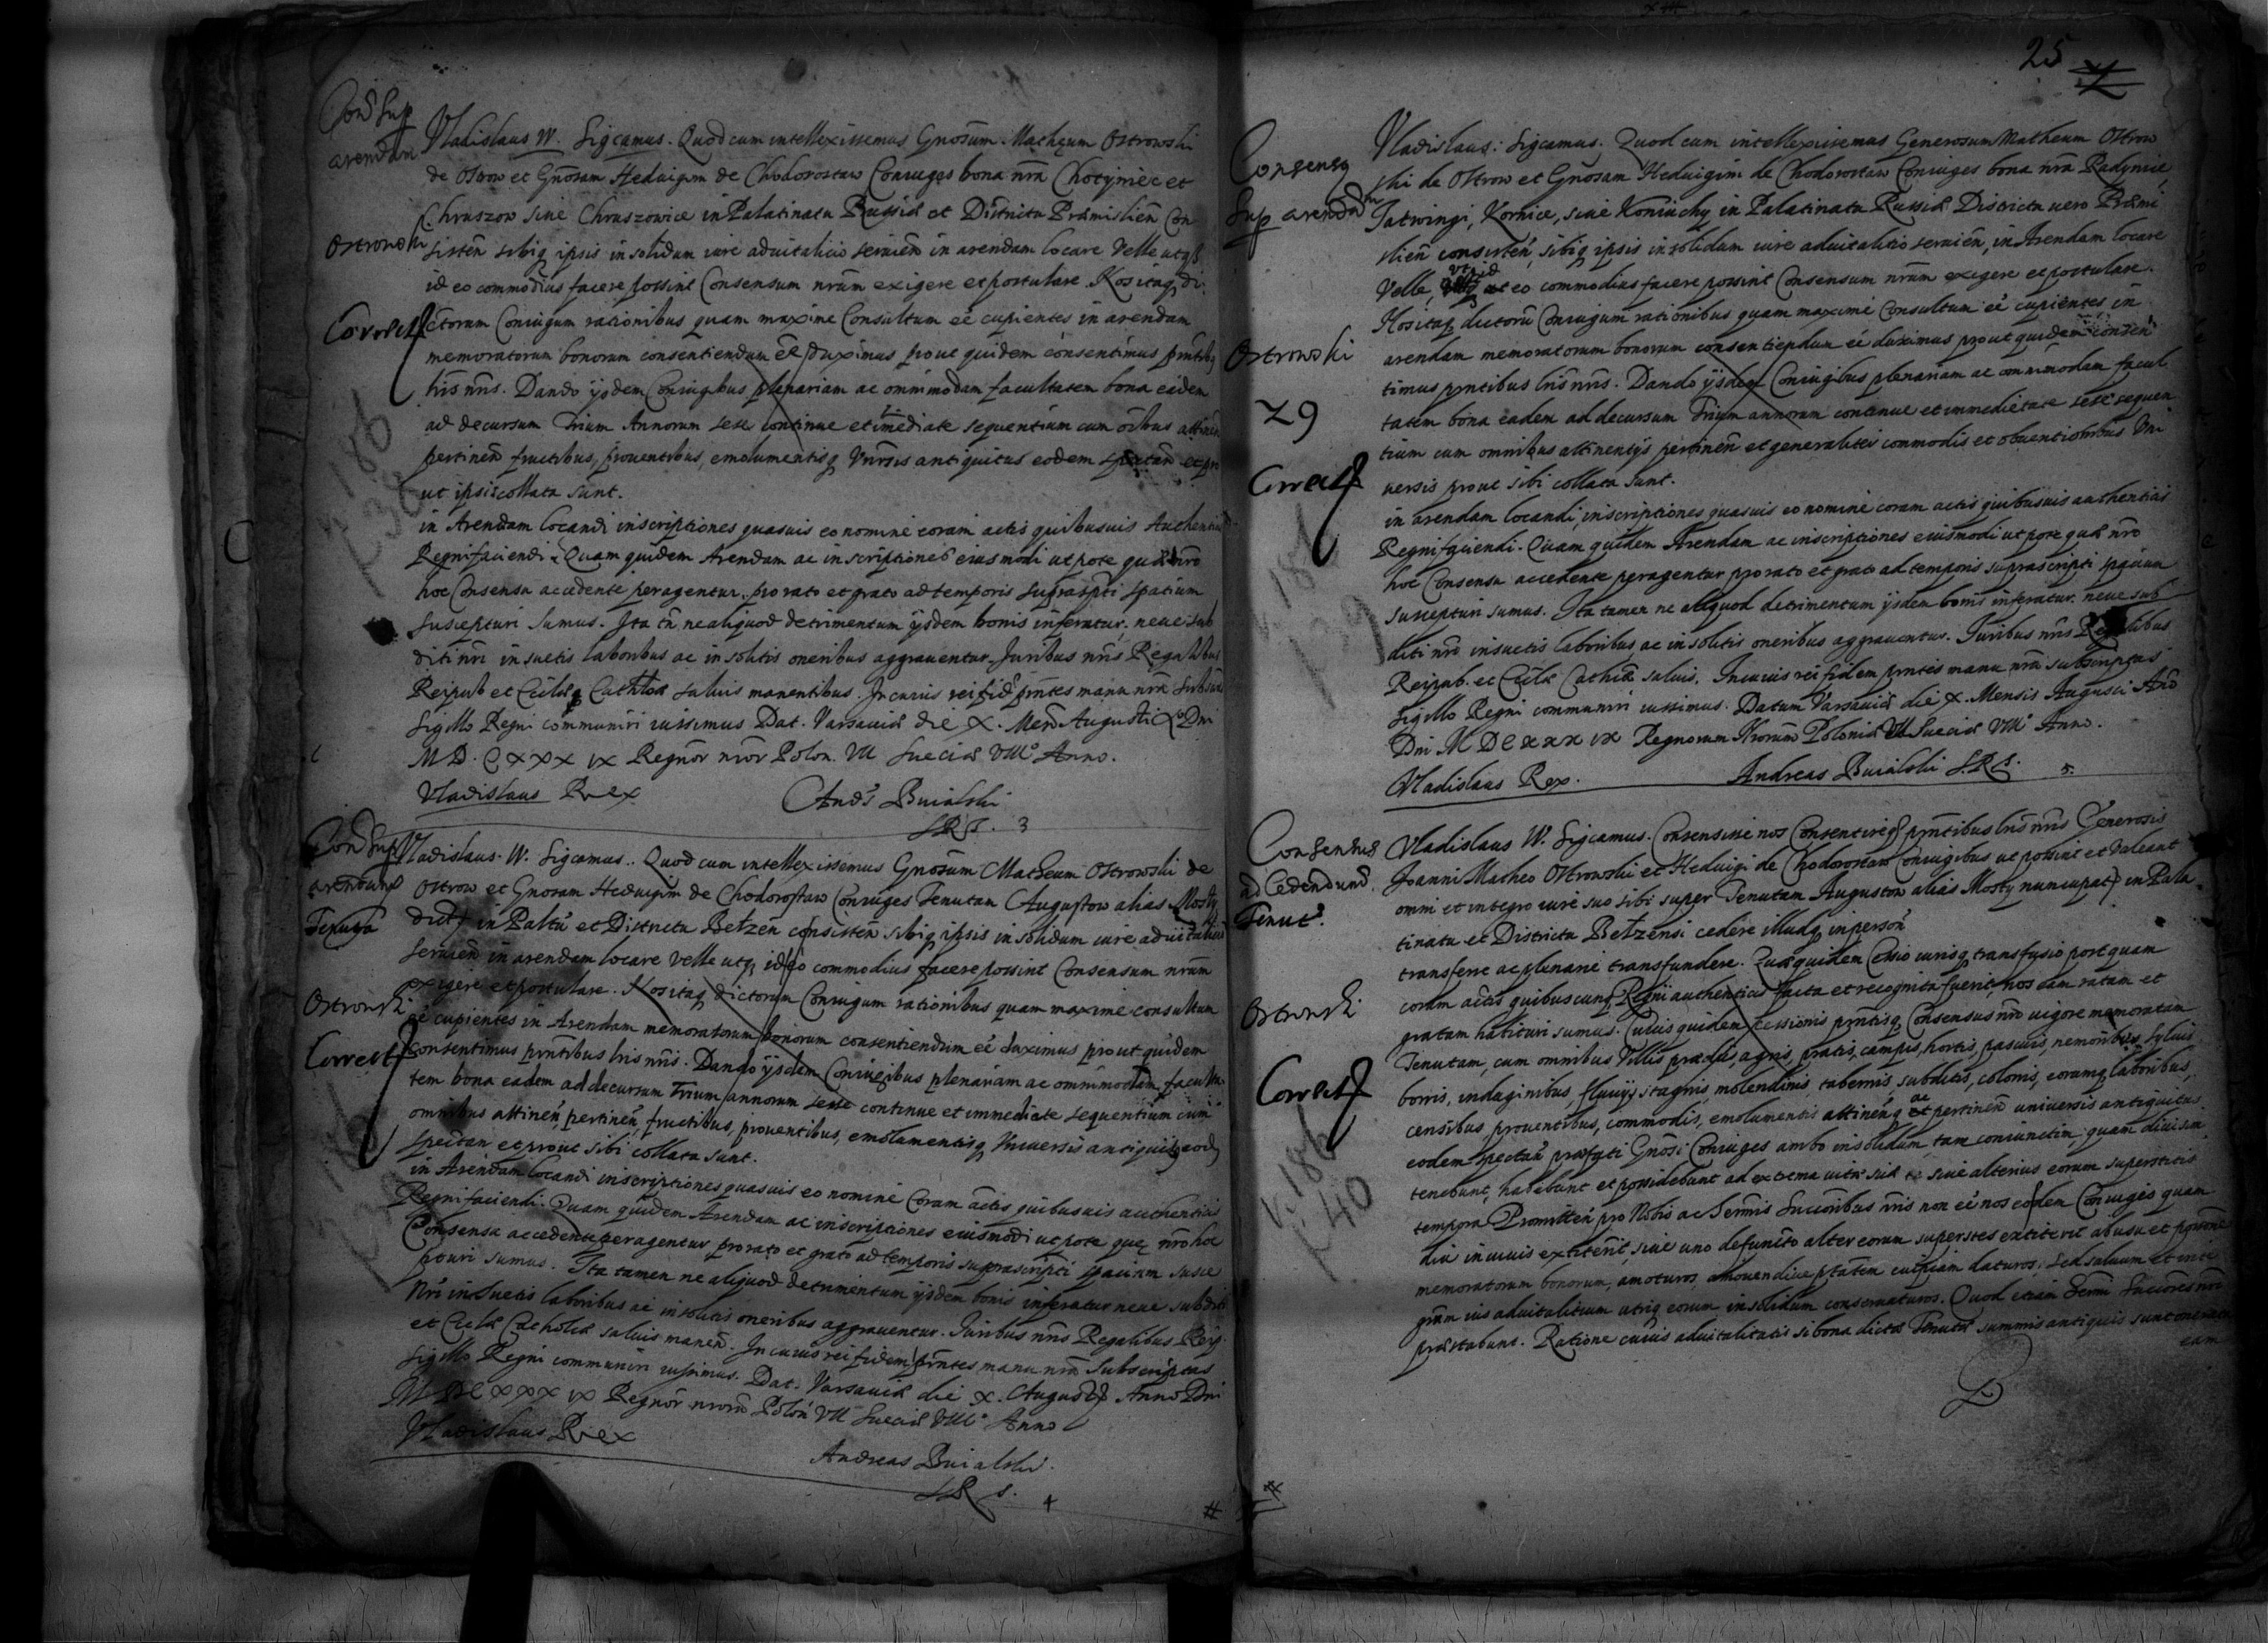 Cons Sup
arendam
Vladislaus IV. Sigcamus. Quod cum intellexissemus Gnosum. Matheum Ostrowski
de Ostrow et Gnosam Hedvigim de Chodorostaw Coniuges bona nra Chotyniec et
Chruszow siue Chruszowice in Palatinatu Russiæ et Districtu Præmislien Con
Ostrowski
sisten sibiq ipsis in solidum iure aduitalicio seruien in arendam locare Velle utq
id eo commodius facere possint Consensum nrum exigere et postulare. Nos itaq di
Correct
ctorum Coniugum rationibus quam maxime Consultum eé cupientes in arendam
memoratorum bonorum consentiendum eé duximus prout quidem consentimus pntibus
lris nris. Dando ijsdem Coniugibus plenariam ac omnimodam facultatem bona eadem
ad decursum Trium Annorum sese continue et imediate sequentium cum oibus attinen
pertinen fructibus, prouentibus, emolumentisq Vniversis antiquitus eodem spectan et pro
ut ipsis collata sunt.
in Arendam locandi inscriptiones quasuis eo nomine coram actis quibusuis Authenticis
Regni faciendi. Quam quidem Arendam ac inscriptiones eiusmodi utpote quæ nro
hoc Consensu accedente peragentur, pro rato et grato ad temporis suprascpti spatium
suscepturi sumus. Ita tn ne aliquod detrimentum ijsdem bonis inferatur. neue sub
diti nri insuetis laboribus ac insolitis oneribus aggrauentur. Juribus nris Regalibus
Reipub et Ecclæ Cathlcæ saluis manentibus. In cuius rei fidé pntes manu nra Subscr
Sigillo Regni communiri iussimus Dat. Varsauiæ die X. Mens Augusti Ao Dni
M D. C XXX IX Regnor nror Polon. VII Sueciæ VIII Anno.
Vladislaus Rex
Ands Buialski
S.R.S. 3
Cons Sup
arendam
Tenuta
Vladislaus. IV. Sigcamus. Quod cum intellexissemus Gnosum Matheum Ostrowski de
Ostrow et Gnosam Hedvigim de Chodorostaw Coniuges Tenutam Augustow alias Mosty
dict in Paltu et Districtu Bełzen consisten sibiq ipsis in solidum iure aduitalicio
seruien in arendam locare velle utq id eo commodius facere possint Consensum nrum
exigere et postulare. Nos itaq dictorum Coniugum rationibus quam maxime consultum
Ostrowski
eé cupientes in Arendam memoratorum bonorum consentiendum eé duximus prout quidem
Correct
consentimus pntibus lris nris. Dando ijsdem Coniugibus plenariam ac omnimodam faculta
tem bona eadem ad decursum Trium annorum sese continue et immediate sequentium cum
omnibus attinen, pertinen, fructibus, prouentibus, emolumentisq Vniuersis antiquitq eod
spectan et prout sibi collata sunt.
in Arendam locandi inscriptiones quasuis eo nomine Coram actis quibusuis authenticis
Regni faciendi. Quam quidem Arendam ac inscriptiones eiusmodi utpote quę nro hoc
Consensu accedente peragentur pro rato et grato ad temporis suprascripti spacium susce
pturi sumus. Ita tamen ne aliquod detrimentum ijsdem bonis inferatur neue subditi
Nri insuetis laboribus ac insolitis oneribus aggrauentur. Juribus nris Regalibus Reip
et Ecclæ Catholcæ saluis manen. In cuius rei fidem pntes manu nra Subscriptas
Sigillo Regni communiri iussimus. Dat. Varsauiæ die X. Augusti Anno Dni
M DC XXX IX Regnor nroru Polon VII Sueciæ VIII Anno
Vladislaus Rex
Andreas Buialski.
S.R.S. 4
25
Consensq
Sup arendam
Vladislaus: Sigcamus. Quod cum intellexissemus Generosum Matheum Ostrow
ski de Ostrow et Gnosam Hedvigim de Chodorostaw Coniuges bona nra Radymie,
Jatwingi, Kornice, siue Koniuchy in Palatinatu Russiæ Districtu uero Præmi
slien consisten, sibiq ipsis in solidum iure aduitalitio seruien, in Arendam locare
Velle, utq id eo commodius facere possint Consensum nrum exigere et postulare.
Nos itaq dictoru Coniugum rationibus quam maxime Consultum eé cupientes in
Ostrowski
arendam memoratorum bonorum consentiendum eé duximus prout quidem consen
timus pntibus lris nris. Dando ijsdem Coniugibus plenariam ac omnimodam facul
29
tatem bona eadem ad decursum Trium annorum continue et immediate sese sequen
tium cum omnibus attinentijs pertinen et generaliter commodis et obuentionibus Vni
Correct
uersis prout sibi collata sunt.
in arendam locandi, inscriptiones quasuis eo nomine coram actis quibusuis authenticis
Regni faciendi. Quam quidem Arendam ac inscriptiones eiusmodi utpote quæ nro
hoc Consensu accedente peragentur pro rato et grato ad temporis suprascripti spacium
suscepturi sumus. Ita tamen ne aliquod detrimentum ijsdem bonis inferatur. neue sub
diti nri insuetis laboribus ac insolitis oneribus aggrauentur. Juribus nris Regalibus
Reipub. et Ecclæ Cathcæ saluis. In cuius rei fidem pntes manu nra subscriptas
Sigillo Regni communiri iussimus. Datum Varsauiæ die X. Mensis Augusti Ano
Dni M DC XXX IX Regnorum Nrorum Poloniæ VII Sueciæ VIII Anno.
Vladislaus Rex.
Andreas Buialski S.R.S. 5.
Consensus
ad Cedendum
Tenut.
Vladislaus IV. Sigcamus. Consensisse nos Consentireq pntibus lris nris Generosis
Joanni Matheo Ostrowski et Hedvigi de Chodorostaw Coniugibus ut possint et Valeant
omni et integro iure suo sibi super Tenutam Augustow alias Mosty nuncupat in Pala
tinatu et Districtu Bełzensi cedere illudq in person
transferre ac plenarie transfundere. Quæ quidem Cessio iurisq transfusio postquam
Ostrowski
coram actis quibuscunq Regni authenticis facta et recognita fuerit, nos eam ratam et
gratam habituri sumus. Cuius quidem cessionis pntisq Consensus nri uigore memoratam
Tenutam, cum omnibus Villis prædijs, agris, pratis, campis, hortis, pascuis, nemoribus, syluis
Correct
borris, indaginibus, fluuijs stagnis, molendinis tabernis subditis, colonis, eorumq laboribus,
censibus prouentibus, commodis, emolumentis attinenq ac pertinen uniuersis antiquitus
eodem spectan præfati Gnosi Coniuges ambo in solidum, tam coniunctim, quam diuisim
tenebunt, habebunt et possidebunt ad extrema uitæ suæ siue alterius eorum superstitis
tempora Promitten pro Nobis ac Sermis Succoribus nris non eé nos eosdem Coniuges quam
diu in uiuis extiterint, siue uno defuncto alter eorum superstes extiterit ab usu et possione
memoratorum bonorum, amoturos amouendiue ptatem cuipiam daturos, sed saluum et inte
grum ius aduitalitium utriq eorum in solidum conseruaturos. Quod etiam Sermi Succores nri
præstabunt. Ratione cuius aduitalitatis si bona dictæ Tenutæ summis antiquis sunt onerata
eam
V. 186
K 40